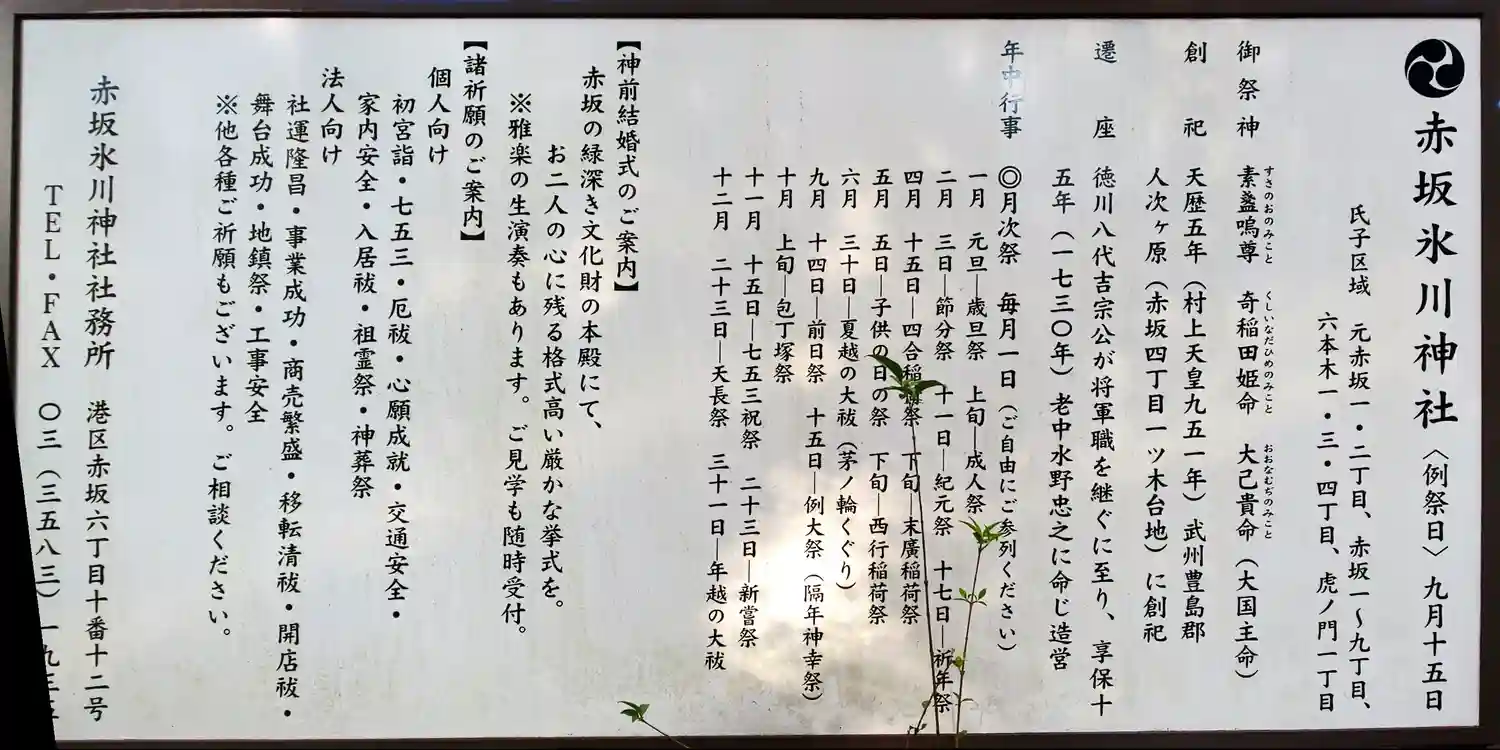 赤坂氷川神社〈例祭日〉九月十五日
氏子区域 元赤坂一・二丁目、赤坂一〜九丁目、
六本木一・三・四丁目、虎ノ門一丁目
御祭神 素盞嗚尊 奇稲田姫命 大己貴命（大国主命）
すさのおのみこと くしいなだひめのみこと おおなむぢのみこと
創祀 天暦五年（村上天皇九五一年）武州豊島郡
人次ヶ原（赤坂四丁目一ツ木台地）に創祀
遷座 徳川八代吉宗公が将軍職を継ぐに至り、享保十
五年（一七三〇年）老中水野忠之に命じ造営
年中行事 ◎月次祭 毎月一日（ご自由にご参列ください）
一月 元旦―歳旦祭 上旬―成人祭
二月 三日―節分祭 十一日―紀元祭 十七日―祈年祭
四月 十五日―四合稲荷祭 下旬―末廣稲荷祭
五月 五日―子供の日の祭 下旬―西行稲荷祭
六月 三十日―夏越の大祓（茅ノ輪くぐり）
九月 十四日―前日祭 十五日―例大祭（隔年神幸祭）
十月 上旬―包丁塚祭
十一月 十五日―七五三祝祭 二十三日―新嘗祭
十二月 二十三日―天長祭 三十一日―年越の大祓
【神前結婚式のご案内】
赤坂の緑深き文化財の本殿にて、
お二人の心に残る格式高い厳かな挙式を。
※雅楽の生演奏もあります。ご見学も随時受付。
【諸祈願のご案内】
個人向け
初宮詣・七五三・厄祓・心願成就・交通安全・
家内安全・入居祓・祖霊祭・神葬祭
法人向け
社運隆昌・事業成功・商売繁盛・移転清祓・開店祓・
舞台成功・地鎮祭・工事安全
※他各種ご祈願もございます。ご相談ください。
赤坂氷川神社社務所 港区赤坂六丁目十番十二号
TEL・FAX 〇三（三五八三）一九三五